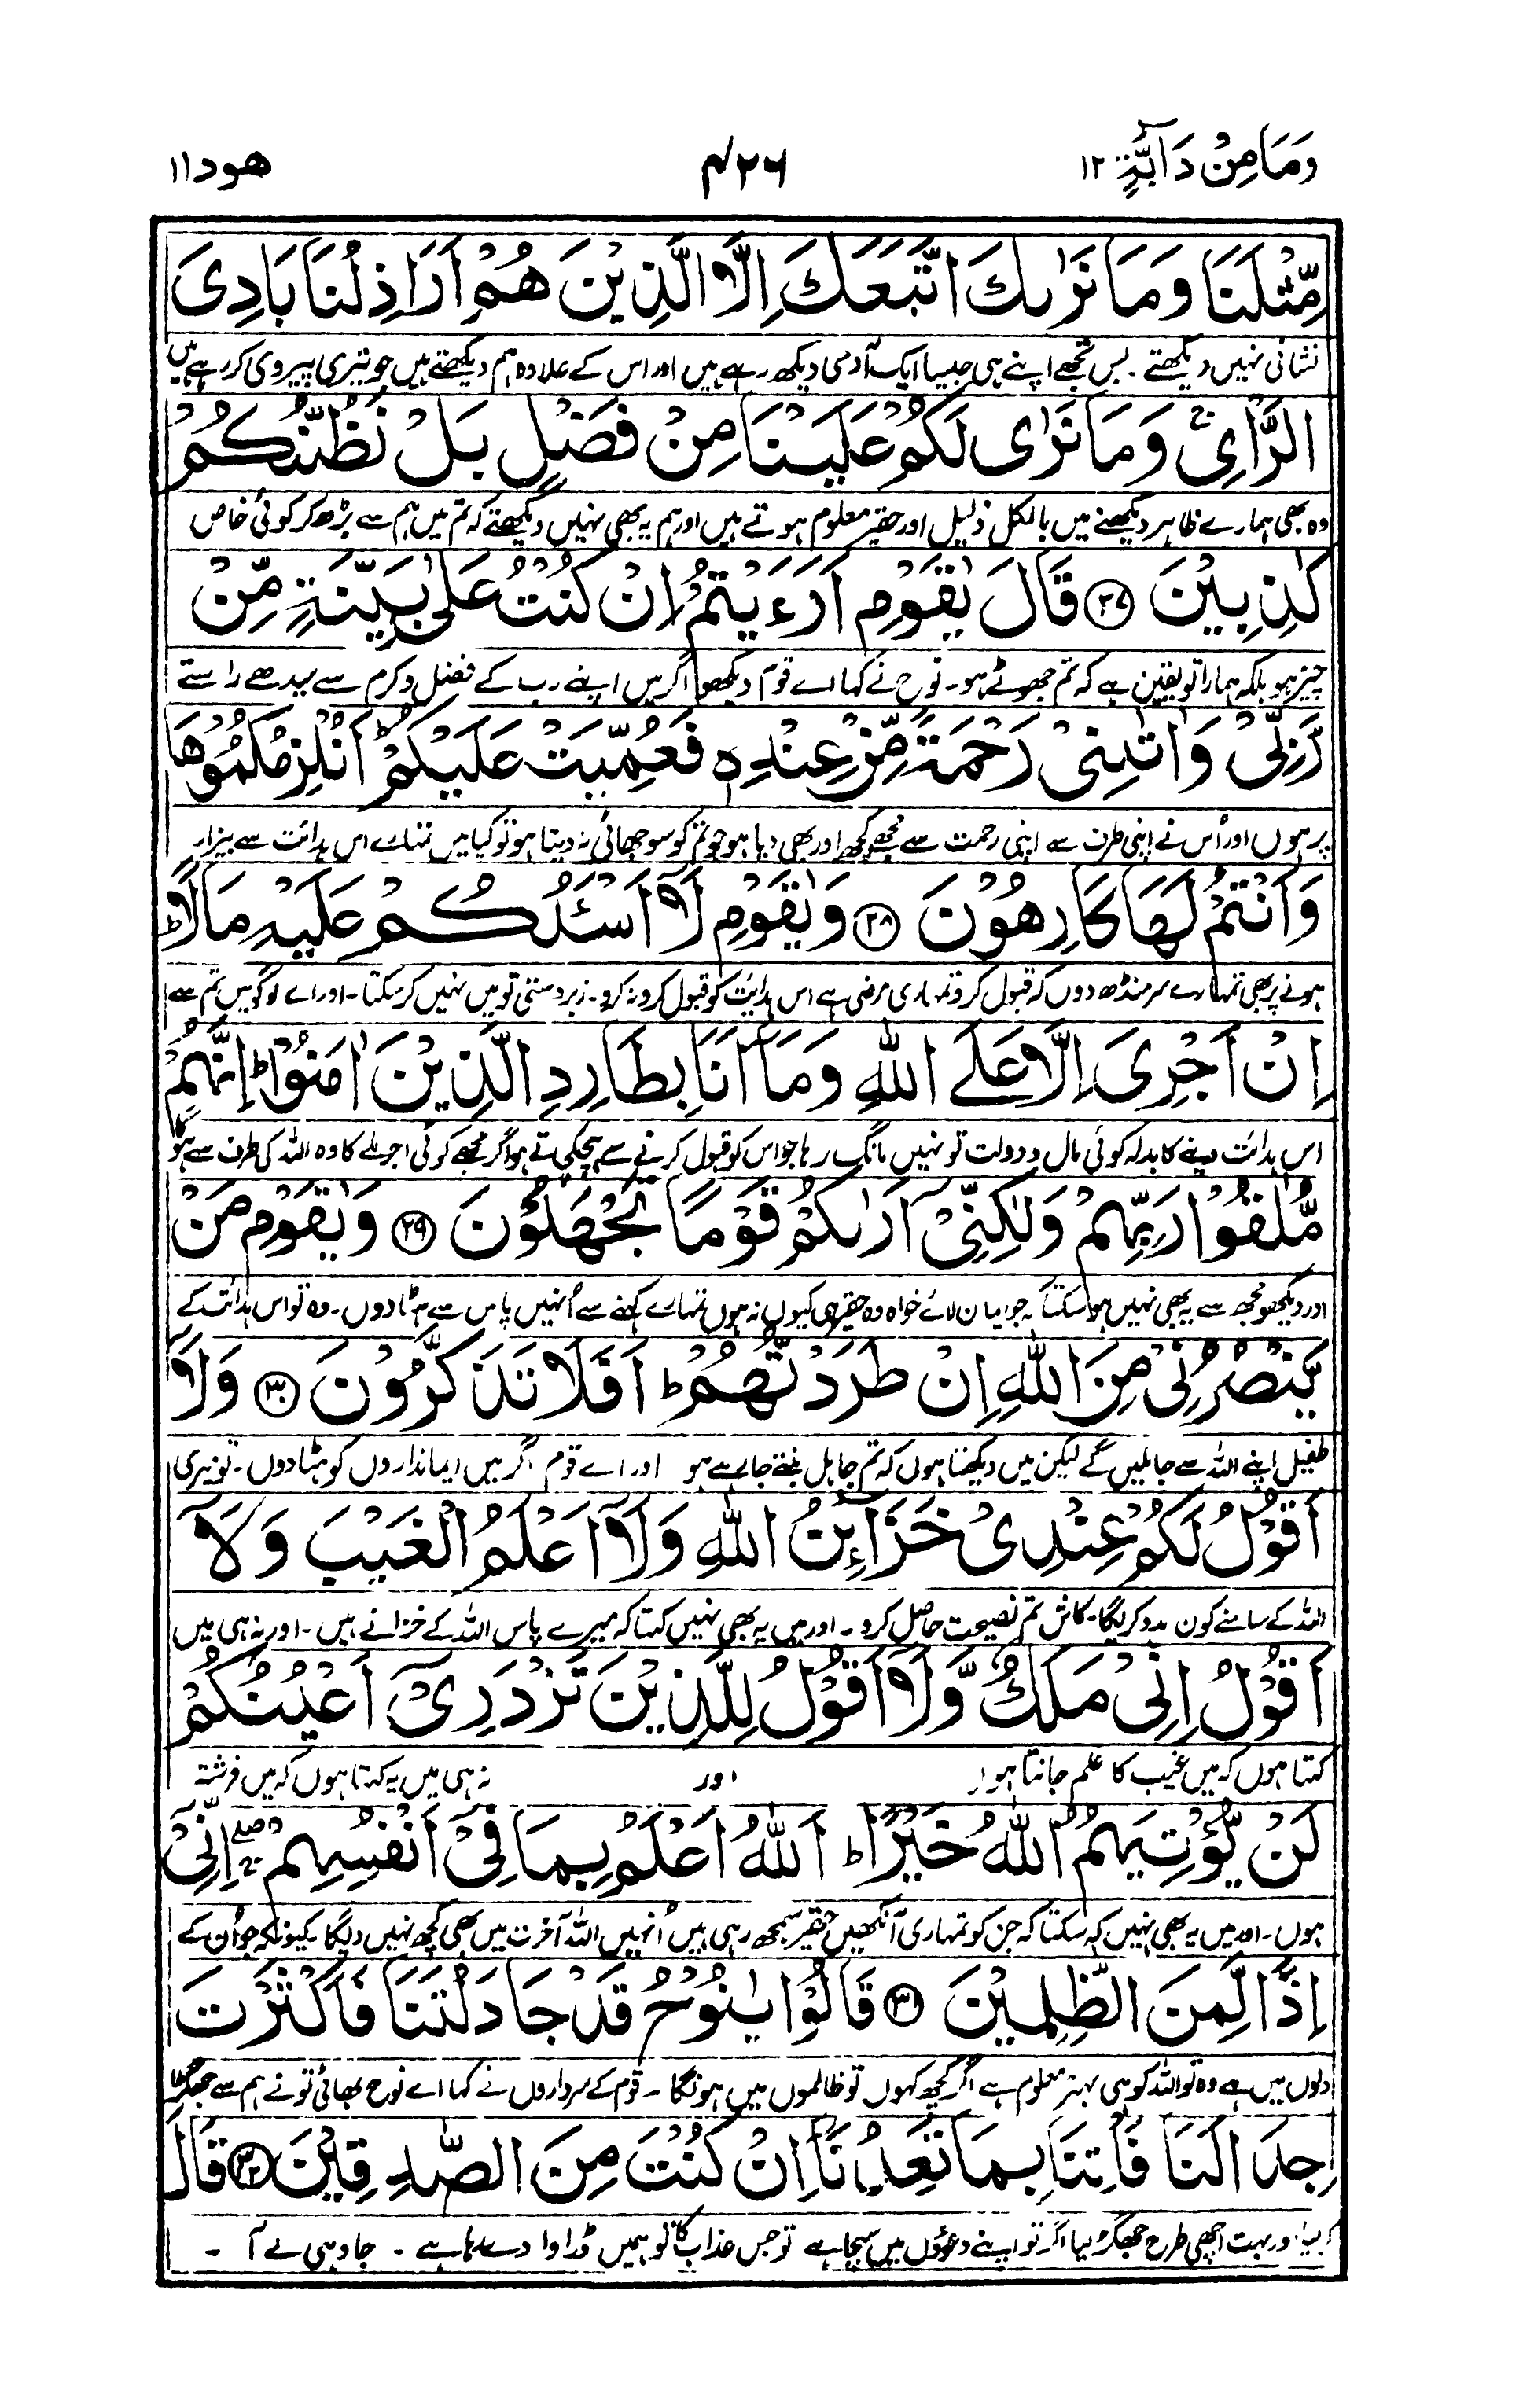 وَمَا مِنْ دَآبَّةٍ ١٢ ٤٢٦ هود ١١
مِّثْلَنَا وَمَا نَرٰىكَ اتَّبَعَكَ اِلَّا الَّذِيْنَ هُمْ اَرَاذِلُنَا بَادِىَ
نشانی نہیں دیکھتے ۔ بس تجھے اپنے ہی جیسا ایک آدمی دیکھ رہے ہیں اور اس کے علاوہ ہم دیکھتے ہیں جو تیری پیروی کر رہے ہیں
الرَّاْىِ ۚ وَمَا نَرٰى لَكُمْ عَلَيْنَا مِنْ فَضْلٍ بَلْ نَظُنُّكُمْ
وہ بھی ہمارے ظاہر دیکھنے میں بالکل ذلیل اور حقیر معلوم ہوتے ہیں اور ہم یہ بھی نہیں دیکھتے کہ تم میں ہم سے بڑھ کر کوئی خاص
كٰذِبِيْنَ ٢٧ قَالَ يٰقَوْمِ اَرَءَيْتُمْ اِنْ كُنْتُ عَلٰى بَيِّنَةٍ مِّنْ
چیز ہو بلکہ ہمارا تو یقین ہے کہ تم جھوٹے ہو ۔ نوح نے کہا اے قوم دیکھو اگر میں اپنے رب کے فضل و کرم سے سیدھے راستے
رَّبِّىْ وَاٰتٰىنِىْ رَحْمَةً مِّنْ عِنْدِهٖ فَعُمِّيَتْ عَلَيْكُمْ ؕ اَنُلْزِمُكُمُوْهَا
پر ہوں اور اُس نے اپنی طرف سے اپنی رحمت سے مجھے کچھ اور بھی دیا ہو جو تم کو سوجھائی نہ دیتا ہو تو کیا میں تمہارے اس ہدائت سے بیزار
وَاَنْتُمْ لَهَا كَارِهُوْنَ ٢٨ وَيٰقَوْمِ لَآ اَسْئَلُكُمْ عَلَيْهِ مَالًا ؕ
ہونے پر بھی تمہارے سر منڈھ دوں کہ قبول کرو تمہاری مرضی ہے اس ہدائت کو قبول کرو نہ کرو ۔ زبردستی تو میں نہیں کر سکتا ۔ اور اے لوگو میں تم سے
اِنْ اَجْرِىَ اِلَّا عَلَى اللّٰهِ وَمَآ اَنَا بِطَارِدِ الَّذِيْنَ اٰمَنُوْا ؕ اِنَّهُمْ
اس ہدائت دینے کا بدلہ کوئی مال و دولت تو نہیں مانگ رہا جو اس کو قبول کرنے سے ہچکچاتے ہو اگر مجھے کوئی اجر ملے گا وہ اللہ کی طرف سے ہو گا
مُّلٰقُوْا رَبِّهِمْ وَلٰكِنِّىْٓ اَرٰىكُمْ قَوْمًا تَجْهَلُوْنَ ٢٩ وَيٰقَوْمِ مَنْ
اور دیکھو مجھ سے یہ بھی نہیں ہو سکتا کہ جو ایمان لائے خواہ وہ حقیر ہی کیوں نہ ہوں تمہارے کہنے سے اُنہیں پاس سے ہٹا دوں ۔ وہ تو اس ہدائت کے
يَّنْصُرُنِىْ مِنَ اللّٰهِ اِنْ طَرَدْتُّهُمْ ؕ اَفَلَا تَذَكَّرُوْنَ ٣٠ وَلَآ
طفیل اپنے اللہ سے جا ملیں گے لیکن میں دیکھتا ہوں کہ تم جاہل بنتے جا رہے ہو اور اے قوم اگر میں ایمانداروں کو ہٹا دوں ۔ تو میری
اَقُوْلُ لَكُمْ عِنْدِىْ خَزَآئِنُ اللّٰهِ وَلَآ اَعْلَمُ الْغَيْبَ وَلَآ
اللہ کے سامنے کون مدد کریگا ۔ کاش تم نصیحت حاصل کرو ۔ اور میں یہ بھی نہیں کہتا کہ میرے پاس اللہ کے خزانے ہیں ۔ اور نہ ہی میں
اَقُوْلُ اِنِّىْ مَلَكٌ وَّلَآ اَقُوْلُ لِلَّذِيْنَ تَزْدَرِىْٓ اَعْيُنُكُمْ
کہتا ہوں کہ میں غیب کا علم جانتا ہوں اور نہ ہی میں یہ کہتا ہوں کہ میں فرشتہ
لَنْ يُّؤْتِيَهُمُ اللّٰهُ خَيْرًا ؕ اَللّٰهُ اَعْلَمُ بِمَا فِىْٓ اَنْفُسِهِمْ ۖۚ اِنِّىْٓ
ہوں ۔ اور میں یہ بھی نہیں کہہ سکتا کہ جن کو تمہاری آنکھیں حقیر سمجھ رہی ہیں اُنہیں اللہ آخرت میں بھی کچھ نہیں دیگا ۔ کیونکہ جو اُن کے
اِذًا لَّمِنَ الظّٰلِمِيْنَ ٣١ قَالُوْا يٰنُوْحُ قَدْ جَادَلْتَنَا فَاَكْثَرْتَ
دلوں میں ہے وہ تو اللہ کو ہی بہتر معلوم ہے اگر کچھ کہوں تو ظالموں میں ہونگا ۔ قوم کے سرداروں نے کہا اے نوح بھائی تو نے ہم سے جھگڑا
جِدَالَنَا فَاْتِنَا بِمَا تَعِدُنَآ اِنْ كُنْتَ مِنَ الصّٰدِقِيْنَ ٣٢ قَالَ
کیا اور بہت اچھی طرح جھگڑ لیا اگر تو اپنے دعوؤں میں سچا ہے تو جس عذاب کا تو ہمیں ڈراوا دے رہا ہے ۔ جا وہی لے آ ۔